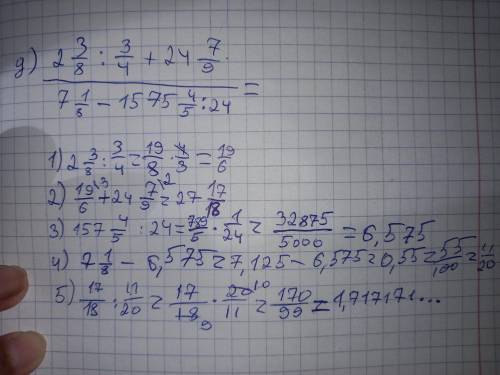 g) (2 3/8 : 3/4 + 24 7/9) / (7 1/8 - 1575 4/5 : 24) =
1) 2 3/8 : 3/4 = 19/8 · 4/3 = 19/6
2) 19/6 \3 + 24 7/9 \2 = 27 17/18
3) 157 4/5 : 24 = 789/5 · 1/24 = 32875/5000 = 6,575
4) 7 1/8 - 6,575 = 7,125 - 6,575 = 0,55 = 55/100 = 11/20
5) 17/18 : 11/20 = 17/18 9 · 20/11 10 = 170/99 = 1,717171...